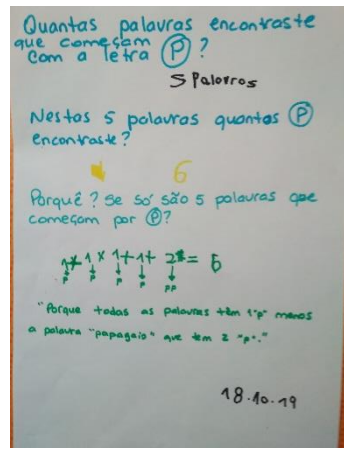 Quantas palavras encontraste
que começam
com a letra P ?
5 Palavras
Nestas 5 palavras quantos P
encontraste?
6
Porquê? Se só são 5 palavras que
começam por P?
1+1+1+1+2=6
P P P P PP
"Porque todas as palavras têm 1 "p" menos
a palavra "papagaio" que tem 2 "p"."
18.10.19